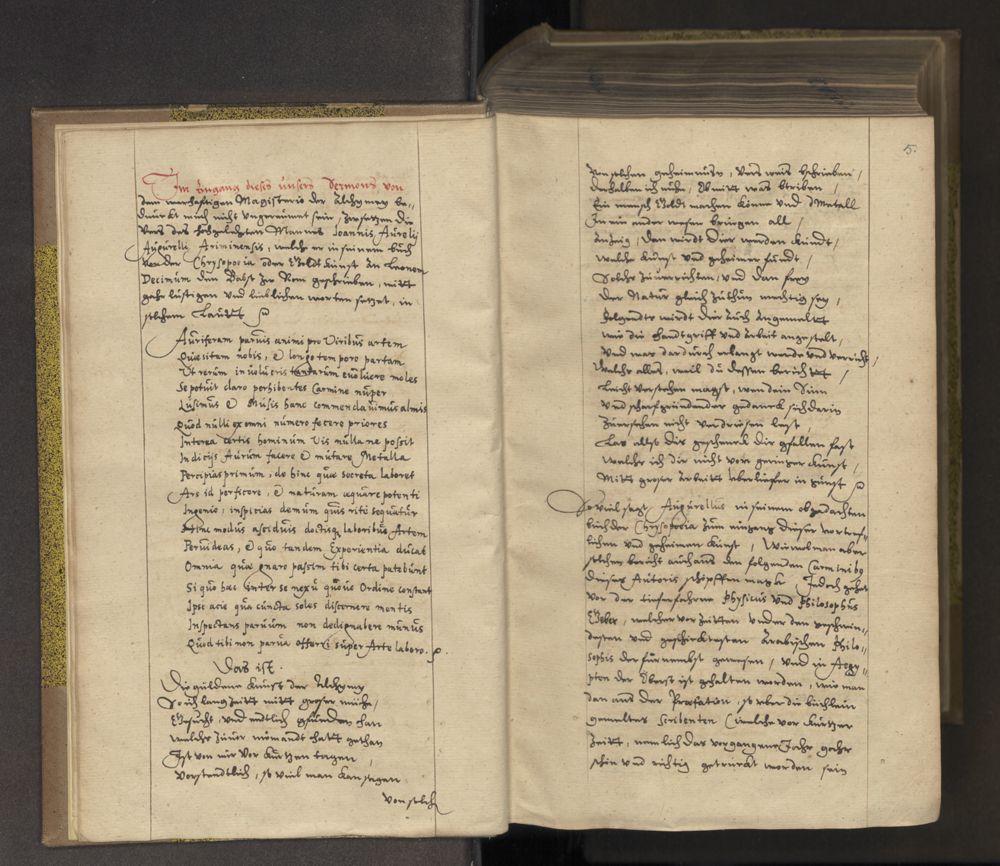 Im Eingang dieses unsers Sermons von
dem warhafftigen Magisterio der Alchymey be„
dunckt mich nicht ungereümbt sein, zusetzen die
Vers des hochgelehrten Mannes Ioannis Aurelij
Augurelli Ariminensis, welche er in seinem buch
von der Chrysopoeia oder Goldt Kunst an Leonem
Decimum den Babst zu Rom geschrieben, mitt
gahr lüstigen und lieblichen worten setzet, in
solchem Lautt
Auriferam paruis animi pro Viribus artem
Quaesitam nobis, & longo tempore partam
Ut rerum inuolucris tandarum euoluere moles
Se potuit claro perhibentes Carmine nuper
Lusimus & Musis hanc commendauimus almis
Quod nulli ex omni numero fecere priores
Interea certis hominum Vis nulla ne possit
Indicijs Aurum facere & mutare Metalla
Percipias primum, de hinc quae secreta laboret
Ars id perficere, & naturam aequare potenti
Ingenio, inspicias demum quis rite sequatur
Hinc modus assiduis doctisque laboribus Artem
Peruideas, & quo tandem Experientia ducat
Omnia quae gnaro passim tibi certa patebunt
Si quo haec inter se nexu quoue Ordine constant
Ipse acie qua cuncta soles discernere mentis
Inspectans paruum non dedignabere munus
Quod tibi non parua offerti super Arte laboro.
Das ist.
Die güldene Kunst der Alchymy
So ich lang Zeitt mitt grosser mühe,
Gesucht, und endtlich gfunden han
welchs Zuuor niemandt hatt gethan
Ist von mir vor kurtzen tagen,
Vorstendtlich, so viel man kan sagen
Von solch
5.
Von solchen geheimnüsn, Vers weis beschrieben,
derhalben ich nuhn, Ob mitt was
Ein mensch Goldt machen könne und d Metall
In ein ander wesen bringen all,
Anzeig, dan wirdt Dir werden kundt,
welche Kunst und geheimer fundt,
Solchs Zuuerrichten, und dan frey
Der Natur gleich Zuthun mechtig sey,
Folgendts wirdt Dir auch angemeltt
wie die Handtgriff und Arbeit angestelt,
Und was dardurch erlangt werde und verricht,
Welchs alles, weil du dessen bericht,
Leicht Verstehen magst, wen dein Sinn
Und scharfgründender gedanck sich darin
Zuuersehen nicht verdriesen lest,
Las also Dir geschenck Dir gfallen fast
welchs ich Dir nicht vom geringer Kunst,
Mitt grosser Arbeitt uberliefer in gunst
So viel sagt Augurellus in seinem obgedachten
buch der Chrysopoeia Zum eingang dieser vortref„
lichen und geheimen Kunst, Wiewol man aber
solchen bericht auch aus den folgenden Carminibus
dieses Autoris schöpffen magk, Jedoch gehet
vor der tieferfahrne Physicus und Philosophus
Geber, welcher vor Zeitten under den verschwin„
desten und geschicktesten Arabischen Philo„
sophis der fürnembst gewesen, und in Aegy„
pten der Oberst ist gehalten worden, wie man
dan aus der Praefation, so uber die büchlein
gemeltes Scribenten (welche vor kurtzer
Zeitt, nemlich das vergangene Jahr gahr
schön und richtig getruckt worden sein